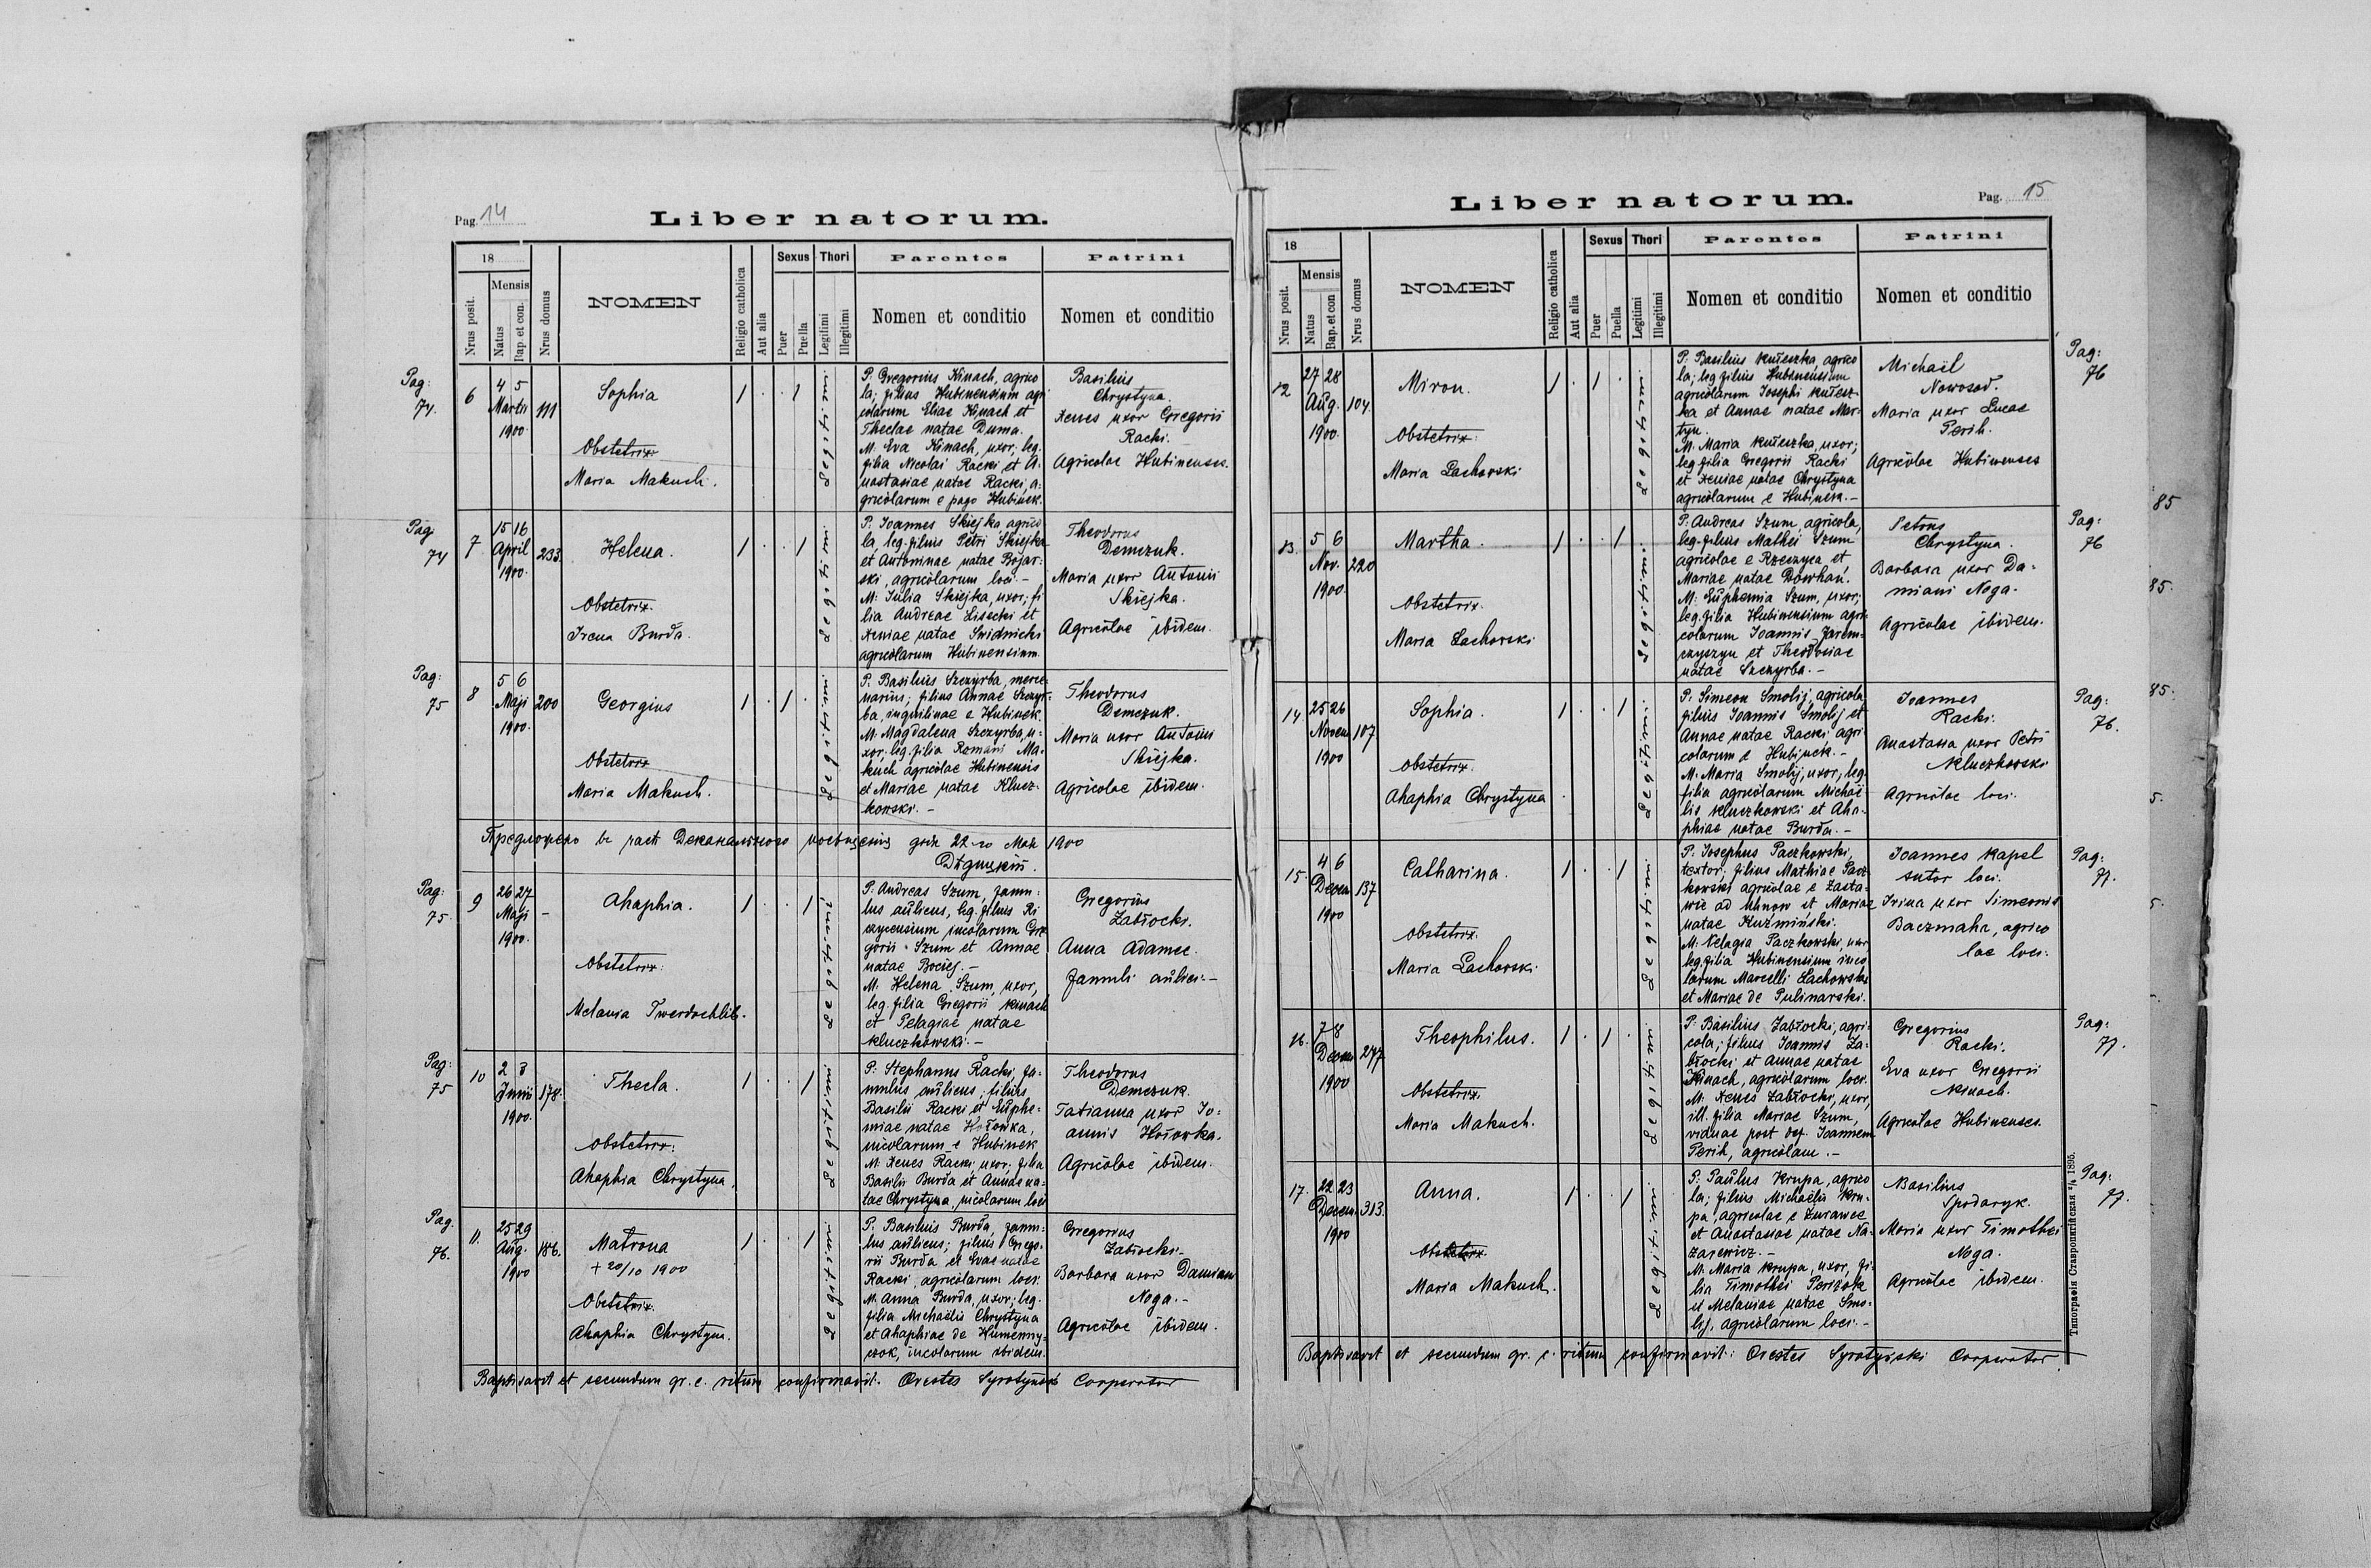 Pag. 14
Liber natorum.
18
Nrus posit.
Mensis
Natus
Bap. et con.
Nrus domus
NOMEN
Religio catholica
Aut alia
Sexus
Puer
Puella
Thori
Legitimi
Illegitimi
Parentes
Nomen et conditio
Patrini
Nomen et conditio
Pag:
74.
6
4 5
Martii
1900.
111
Sophia
Obstetrix
Maria Makuch.
1 . . 1
Legitimi
P. Gregorius Kinach, agrico
la; filius Hubinensium agri
colarum Eliae Kinach et
Theclae natae Duma.
M. Eva Kinach, uxor; leg.
filia Nicolai Racki et A.
nastasiae natae Racki, a-
gricolarum e pago Hubinek.
Basilius
Chrystyna.
Xenes uxor Gregorii
Racki.
Agricolae Hubinenses.
Pag
74
7
15 16
April
1900.
233.
Helena.
Obstetrix.
Irena Burda.
1 . . 1
Legitimi
P. Joannes Skiejka agrico
la, leg. filius Petri Skiejka
et Antoninae natae Bojar:
ski, agricolarum loci.-
M: Julia Skiejka, uxor; fi
lia Andreae Lisecki et
Xeniae natae Swidnicki
agricolarum Hubinensium.
Theodorus
Demczuk.
Maria uxor Antonii
Skiejka.
Agricolae ibidem.
Pag:
75
8
5 6
Maji
1900.
200
Georgius
Obstetrix
Maria Makuch.
1 . 1 .
Legitimi
P. Basilius Szczyrba, merce
narius; filius Annae Szczyr-
ba, inquilinae e Hubinek.
M. Magdalena Szczyrba, u-
xor. leg. filia Romani Ma-
kuch agricolae Hubinensis
et Mariae natae Klucz-
kowski.-
Theodorus
Demczuk.
Maria uxor Antonii
Skiejka.
Agricolae ibidem.
22 1900
Pag:
75.
9
26 27
Maji
1900.
-
Ahaphia.
Obstetrix:
Melania Twerdochlib.
1 . . 1
Legitimi
P. Andreas Szum, famu:
lus aulicus, leg. filius Ri
czycensium incolarum Gre
gorii Szum et Annae
natae Bociej.-
M. Helena Szum, uxor,
leg. filia Gregorii Kinach
et Pelagiae natae
Kluczkowski.-
Gregorius
Zabłocki.
Anna Adamec.
Famuli aulici.-
Pag:
75
10
2 3
Junii
1900.
178.
Thecla.
Obstetrix:
Ahaphia Chrystyna.
1 . . 1
Legitimi
P. Stephanus Racki, fa-
mulus aulicus; filius
Basilii Racki et Euphe-
miae natae Hołowka,
incolarum e Hubinek
M. Xenes Racki, uxor; filia
Basilii Burda et Annae na-
tae Chrystyna, incolarum loci
Theodorus
Demczuk.
Tatianna uxor Jo-
annis Hołowka.
Agricolae ibidem.
Pag.
76.
11.
25 29
Aug.
1900
186.
Matrona
+ 20/10 1900
Obstetrix.
Ahaphia Chrystyna.
1 . . 1
Legitimi
P. Basilius Burda, famu:
lus aulicus; filius Grego-
rii Burda et Evae natae
Racki, agricolarum loci.
M. Anna Burda, uxor; leg.
filia Michaelis Chrystyna
et Ahaphiae de Humenny-
czok, incolarum ibidem.
Gregorius
Zabłocki.-
Barbara uxor Damiani
Noga.-
Agricolae ibidem.
Baptisavit et secundum gr. c. ritum confirmavit. Orestes Cooperator
Pag. 15
Liber natorum.
18
Nrus posit.
Mensis
Natus
Bap. et con
Nrus domus
NOMEN
Religio catholica
Aut alia
Sexus
Puer
Puella
Thori
Legitimi
Illegitimi
Parentes
Nomen et conditio
Patrini
Nomen et conditio
12
27 28
Aug.
1900.
104.
Miron.
Obstetrix.
Maria Lachowski
1 . 1 .
Legitimi
P. Basilius Kułeszka, agrico
la; leg. filius Hubinensium
agricolarum Josephi Kułesz-
ka et Annae natae Mar-
tyn.
M. Maria Kułeszka, uxor;
leg. filia Gregorii Racki
et Xeniae natae Chrystyna
agricolarum e Hubinek.-
Michaël
Nowosad.
Maria uxor Lucae
Perih.
Agricolae Hubinenses
Pag:
76
13.
5 6
Nov.
1900.
220
Martha.
Obstetrix.
Maria Lachowski
1 . . 1
Legitimi
P. Andreas Szum, agricola,
leg. filius Mathei Szum
agricolae e Rzeczyca et
Mariae natae Dowhań.
M. Euphemia Szum, uxor;
leg. filia Hubinensium agri-
colarum Joannis Jarem-
czyszyn et Theodosiae
natae Szczyrba.-
Petrus
Chrystyna.
Barbara uxor Da-
miani Noga.
Agricolae ibidem.
Pag:
76
14.
25 26
Novem
1900
107
Sophia.
Obstetrix.
Ahaphia Chrystyna
1 . . 1
Legitimi
P. Simeon Smolij, agricola
filius Joannis Smolij et
Annae natae Racki agri
colarum e Hubinek.-
M. Maria Smolij, uxor, leg.
filia agricolarum Michae-
lis Kluczkowski et Aha-
phiae natae Burda.-
Joannes
Racki.
Anastasia uxor Petri
Kluczkowski
Agricolae loci.
Pag:
76.
15.
4 6
Decem
1900
137
Catharina.
Obstetrix.
Maria Lachowski
1 . . 1
Legitimi
P. Josephus Paczkowski,
textor, filius Mathiae Pacz
kowski agricolae e Zasta-
wie ad Uhnow et Mariae
natae Kuźmiński.
M. Pelagia Paczkowski, uxor
leg. filia Hubinensium inco
larum Marcelli Lachowski
et Mariae de Pulinarski.
Joannes Kapel
sutor loci.
Irina uxor Simeonis
Baczmaha, agrico
lae loci.
Pag:
77.
16.
7 8
Decem
1900
277
Theophilus.
Obstetrix.
Maria Makuch.
1 . 1 .
Legitimi
P: Basilius Zabłocki, agri-
cola; filius Joannis Za-
błocki et Annae natae
Kinach, agricolarum loci.
M. Xenes Zabłocki, uxor,
ill. filia Mariae Szum,
viduae post def. Joannem
Perih, agricolam.-
Gregorius
Racki.
Eva uxor Gregorii
Kinach.
Agricolae Hubinenses.
Pag:
77.
17.
22 23
Decem
1900
313.
Anna.
Obstetrix
Maria Makuch.
1 . . 1
Legitimi
P. Paulus Krupa, agrico
la; filius Michaelis Kru-
pa, agricolae e Żurawce
et Anastasiae natae Na-
zarewicz.-
M. Maria Krupa, uxor, fi-
lia Timothei
et Melaniae natae Smo-
lij, agricolarum loci.-
Basilius
Spodaryk.
Maria uxor Timothei
Noga.
Agricolae ibidem.
Pag:
77.
Baptisavit et secundum gr. c. ritum confirmavit: Orestes Cooperator
Типографія Ставропигійская 1895.
85
85.
85.
5.
5.